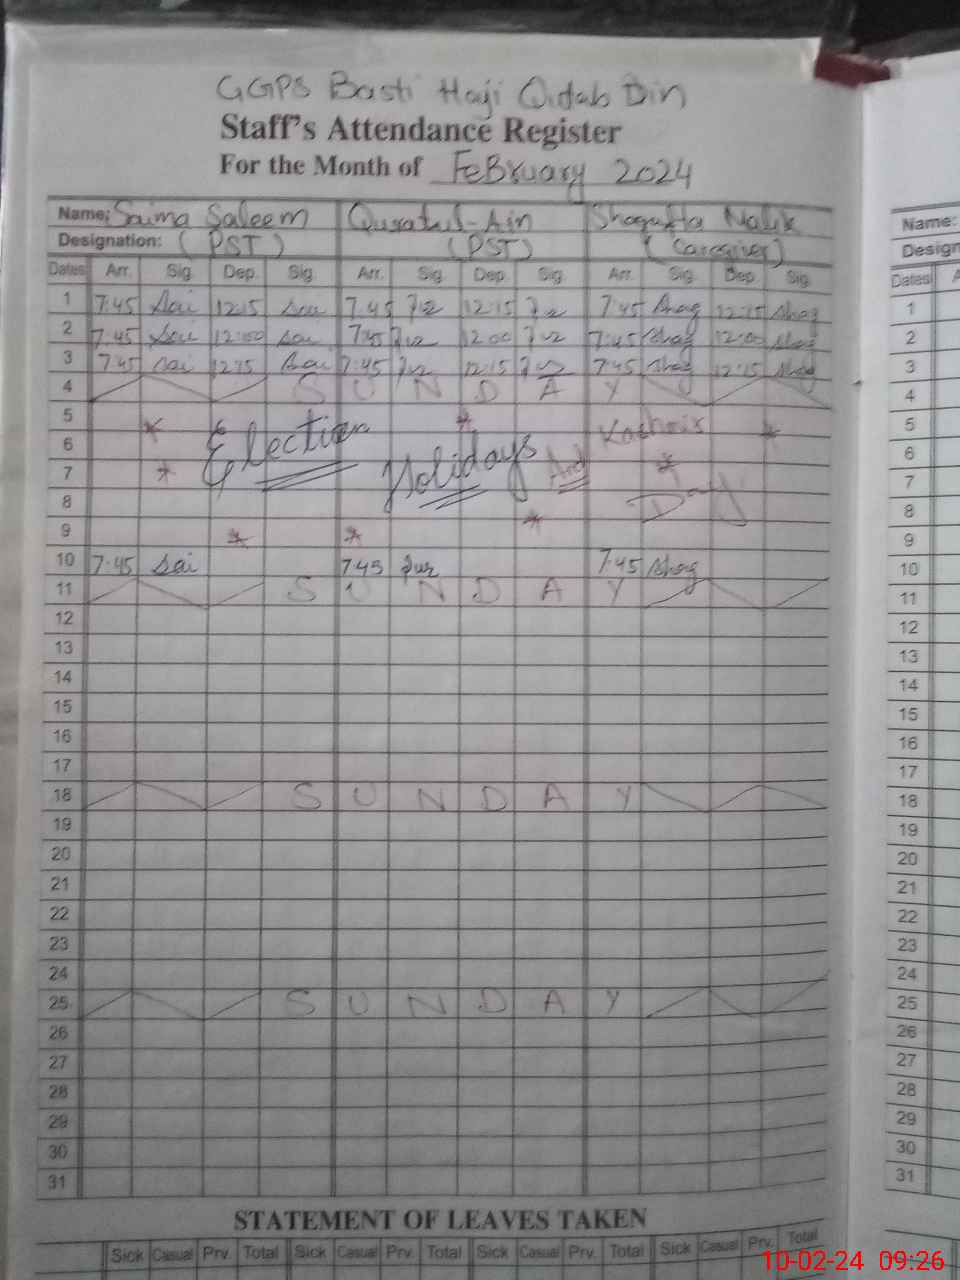 GGPS Basti Haji Qutab Din
Staff's Attendance Register
For the Month of February 2024
Name: Saima Saleem Quratul-Ain Shagufta Malik
Designation: (PST) (PST) (Caregiver)
Dates Arr. Sig. Dep. Sig. Arr. Sig. Dep. Sig. Arr. Sig. Dep. Sig.
1 7:45 Sai 12:15 Sai 7:45 12:15 7:45 Shag 12:15 Shag
2 7:45 Sai 12:00 Sai 7:45 12:00 7:45 Shag 12:00 Shag
3 7:45 Sai 12:15 Sai 7:45 12:15 7:45 Shag 12:15 Shag
4 S U N D A Y
5
6 Election Holidays And Kashmir Day
7
8
9
10 7:45 Sai 7:45 7:45 Shag
11 S U N D A Y
12
13
14
15
16
17
18 S U N D A Y
19
20
21
22
23
24
25 S U N D A Y
26
27
28
29
30
31
STATEMENT OF LEAVES TAKEN
Sick Casual Prv. Total Sick Casual Prv. Total Sick Casual Prv. Total Sick Casual Prv. Total
Name:
Dates
1
2
3
4
5
6
7
8
9
10
11
12
13
14
15
16
17
18
19
20
21
22
23
24
25
26
27
28
29
30
31
10-02-24 09:26